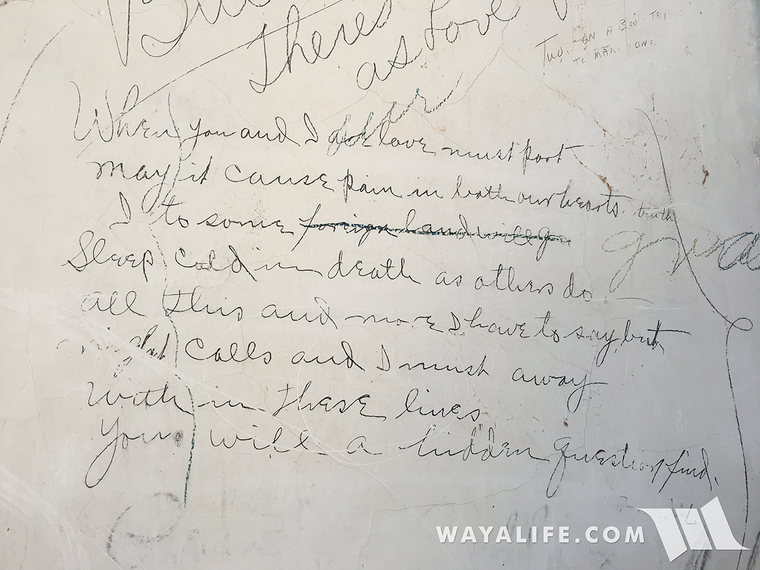 Theres
as Love
When you and I love must part
may it cause pain in both our hearts.
I to some foreign land will go
Sleep cold in death as others do
all this and more I have to say but
night calls and I must away
With in these lines
You will a hidden question find.
WAYALIFE.COM